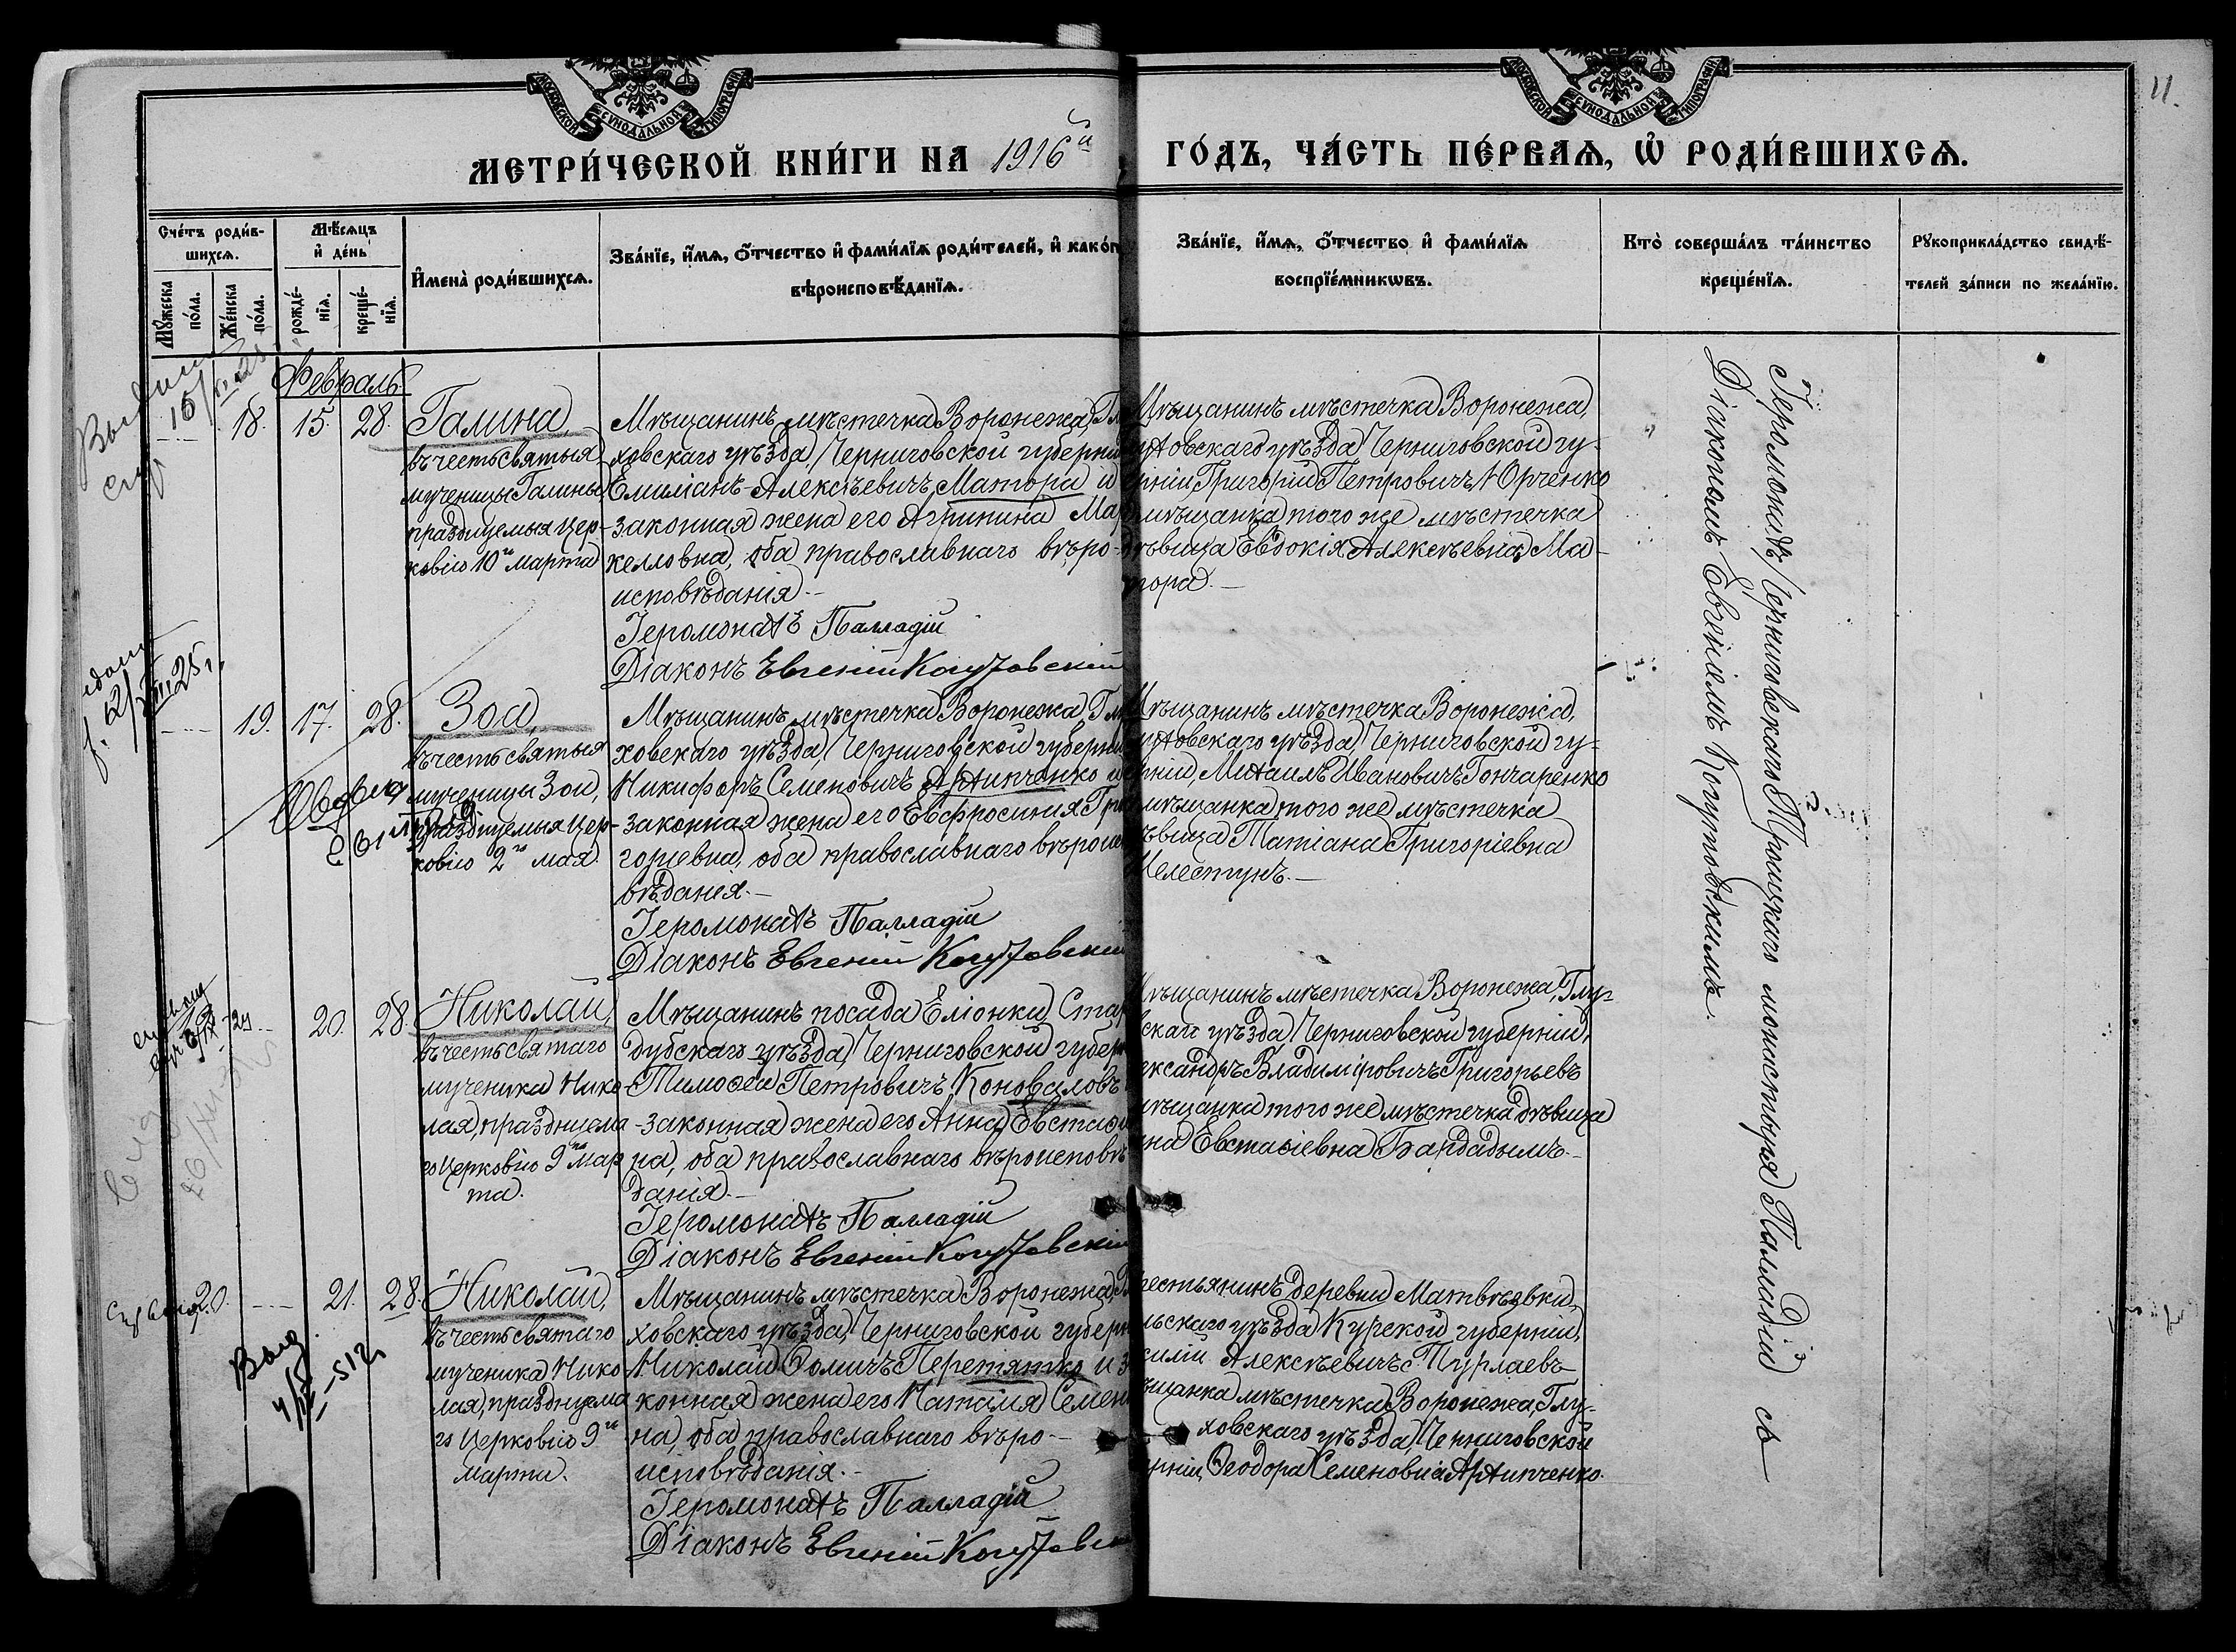 11.
МОСКОВСКОЙ СѴНОДАЛЬНОЙ ТИПОГРАФІИ
МОСКОВСКОЙ СѴНОДАЛЬНОЙ ТИПОГРАФІИ
МЕТРИ́ЧЕСКОЙ КНИ́ГИ НА 1916й
ГО́ДЪ, ЧА́СТЬ ПЕ́РВАѦ, Ѡ҆ РОДИ́ВШИХСѦ.
Сче́тъ роди́в-
шихсѧ.
Мꙋ́жеска
по́ла.
Же́нска
по́ла.
Мѣ́сѧцъ
и҆ де́нь
рожде́-
нїѧ.
креще́-
нїѧ.
И҆мена̀ роди́вшихсѧ.
Зва́нїе, и҆́мѧ, ѻ҆́тчество и҆ фами́лїѧ роди́телей, и҆ како́г
вѣроисповѣ́данїѧ.
Зва́нїе, и҆́мѧ, ѻ҆́тчество и҆ фами́лїѧ
воспрїе́мникѡвъ.
Кто̀ соверша́лъ та́инство
креще́нїѧ.
Рꙋкоприкла́дство свидѣ́-
телей за́писи по жела́нїю.
Февраль
18. 15. 28.
Галина,
въ честь святыя
мученицы Галины
празднуемыя Цер-
ковію 10го марта
Мѣщанинъ мѣстечка Воронежа, Глу
ховскаго уѣзда, Черниговской губерніи
Емиліанъ Алексѣевичъ Матора и
законная жена его Агрипина Мар
келловна, оба православнаго вѣро-
исповѣданія.
Іеромонахъ Палладій
Діаконъ Евгеній Когутовскій
Мѣщанинъ мѣстечка Воронежа,
уховскаго уѣзда, Черниговской гу-
ерніи Григорій Петровичъ Юрченко
мѣщанка того же мѣстечка
дѣвица Евдокія Алексѣевна Ма-
тора.
Іеромонахъ Черниговскаго Троицкаго монастыря Палладій съ
Діакономъ Евгеніемъ Когутовскимъ.
19. 17. 28.
Зоа,
въ честь святыя
мученицы Зои,
празднуемыя Цер-
ковію 2го мая.
Мѣщанинъ мѣстечка Воронежа, Глу
ховскаго уѣзда, Черниговской губерніи
Никифоръ Семеновичъ Архипченко и
законная жена его Евфросинія Гри
горіевна, оба православнаго вѣроиспо
вѣданія.
Іеромонахъ Палладій
Діаконъ Евгеній Когутовскій
Мѣщанинъ мѣстечка Воронежа,
уховскаго уѣзда, Черниговской гу-
ерніи, Михаилъ Ивановичъ Гончаренко
мѣщанка того же мѣстечка
дѣвица Татіана Григоріевна
Шелестунъ.
20. 28.
Николай,
въ честь святаго
мученика Нико
лая, празднуема
го Церковію 9го мар
та.
Мѣщанинъ посада Еліонки, Старо
дубскаго уѣзда, Черниговской губер
Тимофей Петровичъ Коноваловъ
законная жена его Анна Евстафи
на, оба православнаго вѣроисповѣ
данія.
Іеромонахъ Палладій
Діаконъ Евгеній Когутовскій
Мѣщанинъ мѣстечка Воронежа, Глу-
вскаго уѣзда, Черниговской губерніи,
ександръ Владиміровичъ Григорьевъ
мѣщанка того же мѣстечка дѣвица
нна Евстафіевна Бандадымъ.
20. 21. 28.
Николай,
въ честь святаго
мученика Нико
лая, празднуема
го Церковію 9го
марта.
Мѣщанинъ мѣстечка Воронежа, Г
ховскаго уѣзда, Черниговской губерн
Николай Фомичъ Перетятко и з
конная жена его Наталія Семен
на, оба православнаго вѣро-
исповѣданія.
Іеромонахъ Палладій
Діаконъ Евгеній Когутовск
рестьянинъ деревни Матвѣевки,
льскаго уѣзда Курской губерніи,
силій Алексѣевичъ Пурлаевъ
ѣщанка мѣстечка Воронежа, Глу-
ховскаго уѣзда, Черниговской
ерніи, Феодора Семеновна Архипченко.